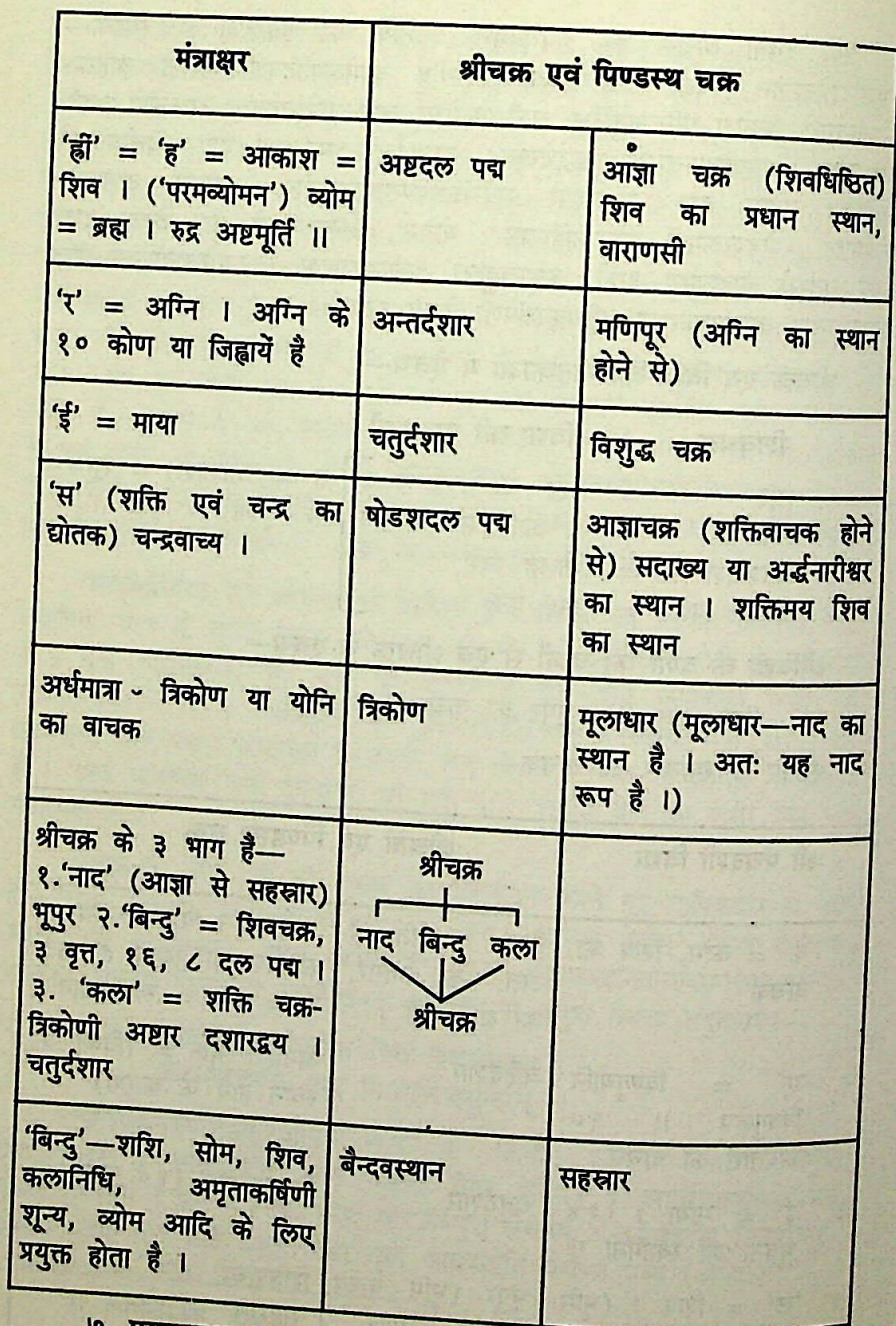 मंत्राक्षर
श्रीचक्र एवं पिण्डस्थ चक्र
'ह्रीं' = 'ह' = आकाश =
शिव । ('परमव्योमन') व्योम
= ब्रह्म । रुद्र अष्टमूर्ति ॥
अष्टदल पद्म
आंज्ञा चक्र (शिवधिष्ठित)
शिव का प्रधान स्थान,
वाराणसी
'र' = अग्नि । अग्नि के
१० कोण या जिह्वायें है
अन्तर्दशार
मणिपूर (अग्नि का स्थान
होने से)
'ई' = माया
चतुर्दशार
विशुद्ध चक्र
'स' (शक्ति एवं चन्द्र का
द्योतक) चन्द्रवाच्य ।
षोडशदल पद्म
आज्ञाचक्र (शक्तिवाचक होने
से) सदाख्य या अर्द्धनारीश्वर
का स्थान । शक्तिमय शिव
का स्थान
अर्धमात्रा - त्रिकोण या योनि
का वाचक
त्रिकोण
मूलाधार (मूलाधार—नाद का
स्थान है । अत: यह नाद
रूप है ।)
श्रीचक्र के ३ भाग है—
१.'नाद' (आज्ञा से सहस्रार)
भूपुर २.'बिन्दु' = शिवचक्र,
३ वृत्त, १६, ८ दल पद्म ।
३. 'कला' = शक्ति चक्र-
त्रिकोणी अष्टार दशारद्वय ।
चतुर्दशार
श्रीचक्र
नाद बिन्दु कला
श्रीचक्र
'बिन्दु'—शशि, सोम, शिव,
कलानिधि, अमृताकर्षिणी
शून्य, व्योम आदि के लिए
प्रयुक्त होता है ।
बैन्दवस्थान
सहस्रार